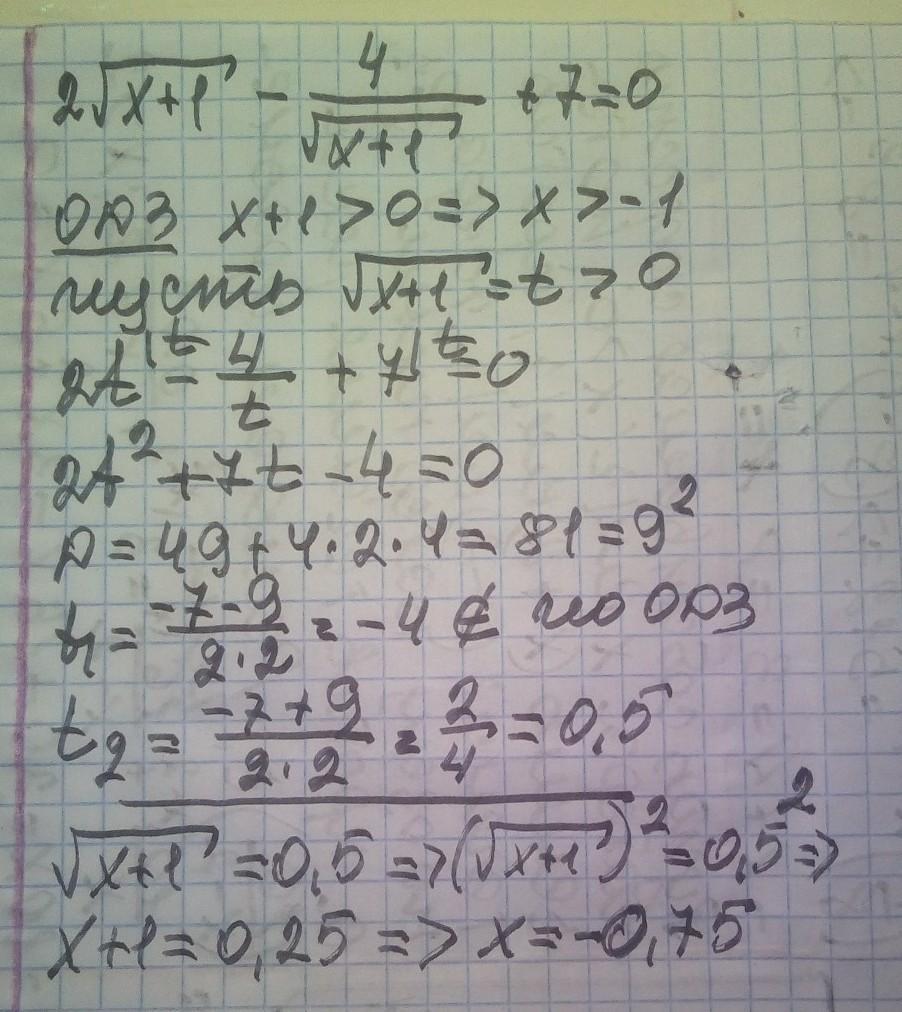 2√(x+1) - 4/√(x+1) + 7 = 0
ОДЗ x+1 > 0 => x > -1
пусть √(x+1) = t > 0
2t^|t - 4/t + 7^|t = 0
2t² + 7t - 4 = 0
D = 49 + 4·2·4 = 81 = 9²
t₁ = (-7-9)/(2·2) = -4 ∉ по ОДЗ
t₂ = (-7+9)/(2·2) = 2/4 = 0,5
√(x+1) = 0,5 => (√(x+1))² = 0,5² =>
x+1 = 0,25 => x = -0,75